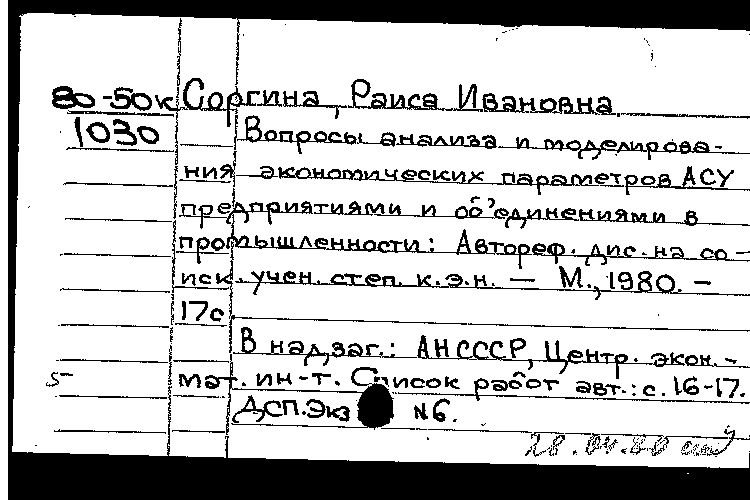 80-50к Соргина, Раиса Ивановна
1030 Вопросы анализа и моделирова-
ния экономических параметров АСУ
предприятиями и об'единениями в
промышленности: Автореф. дис. на со-
иск. учен. степ. к.э.н. — М., 1980. -
17с.
В надзаг.: АН СССР, Центр. экон.-
5- мат. ин-т. Список работ авт.: с. 16-17.
ДСП. Экз N6.
28.04.80